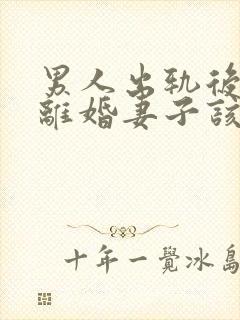 男人出轨後
離婚妻子該
十年一覺冰島